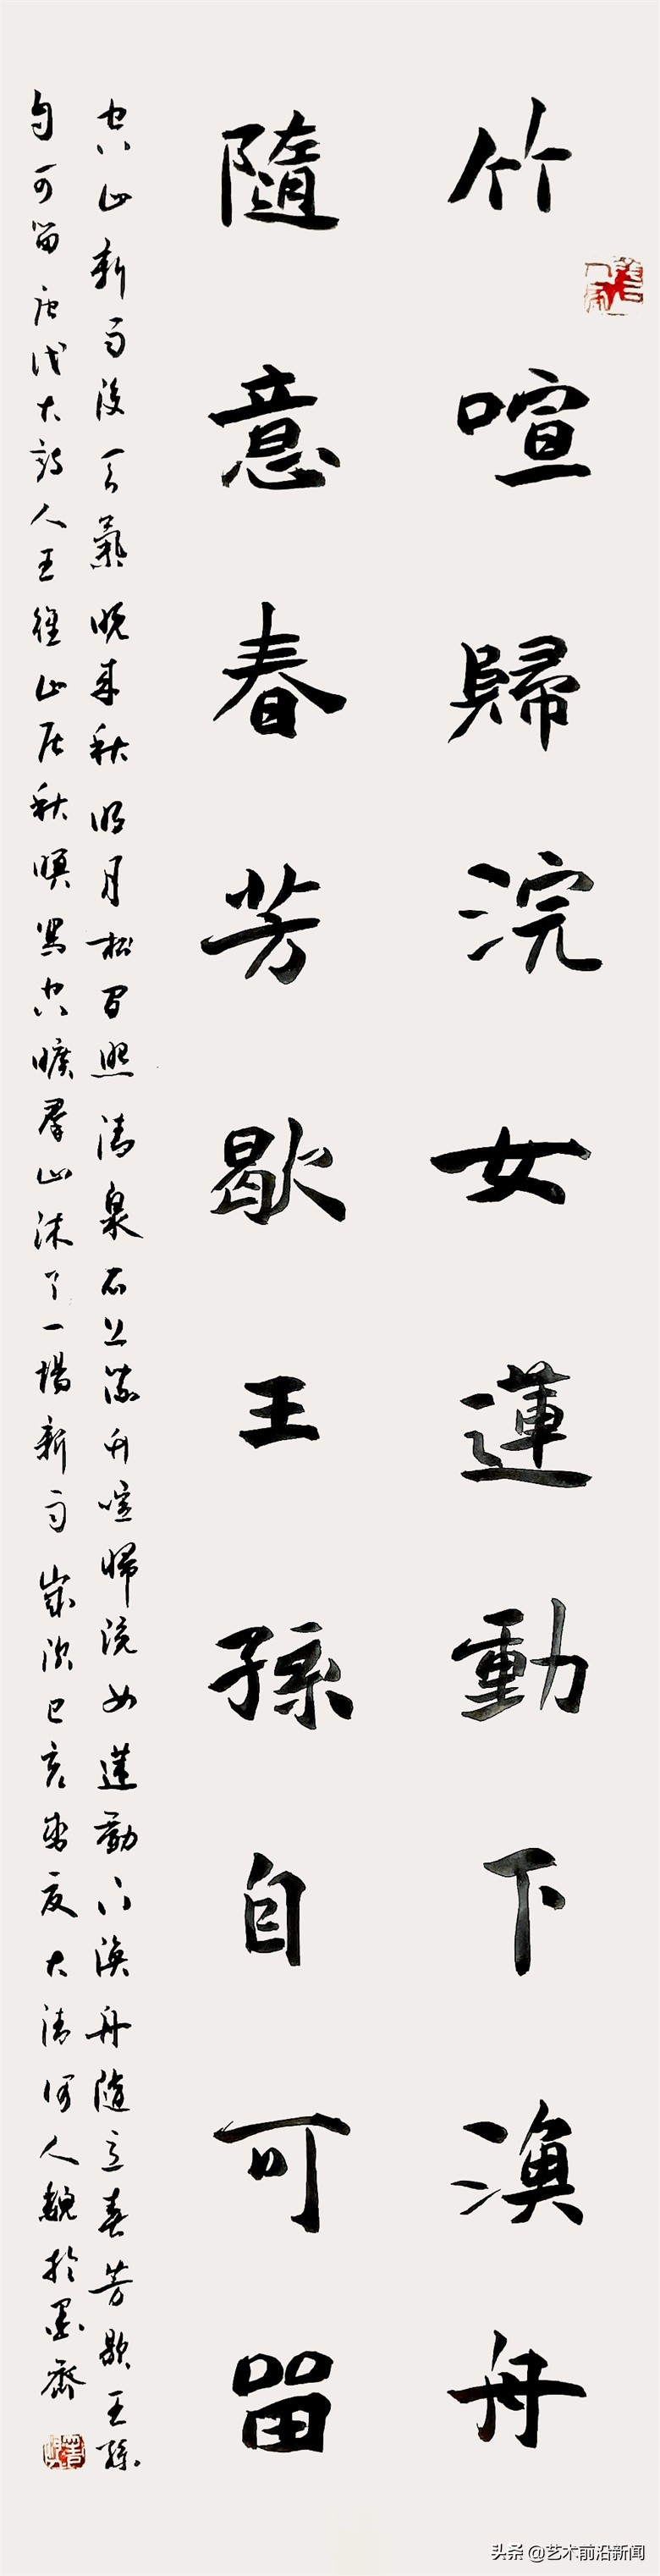 竹喧歸浣女蓮動下漁舟
隨意春芳歇王孫自可留
空山新雨後天氣晚來秋明月松間照清泉石上流竹喧歸浣女蓮動下漁舟隨意春芳歇王孫
自可留唐代大詩人王維山居秋暝寫空曠羣山沐了一場新雨歲次己亥夏大清河人魏於墨齋
头条 @艺术前沿新闻